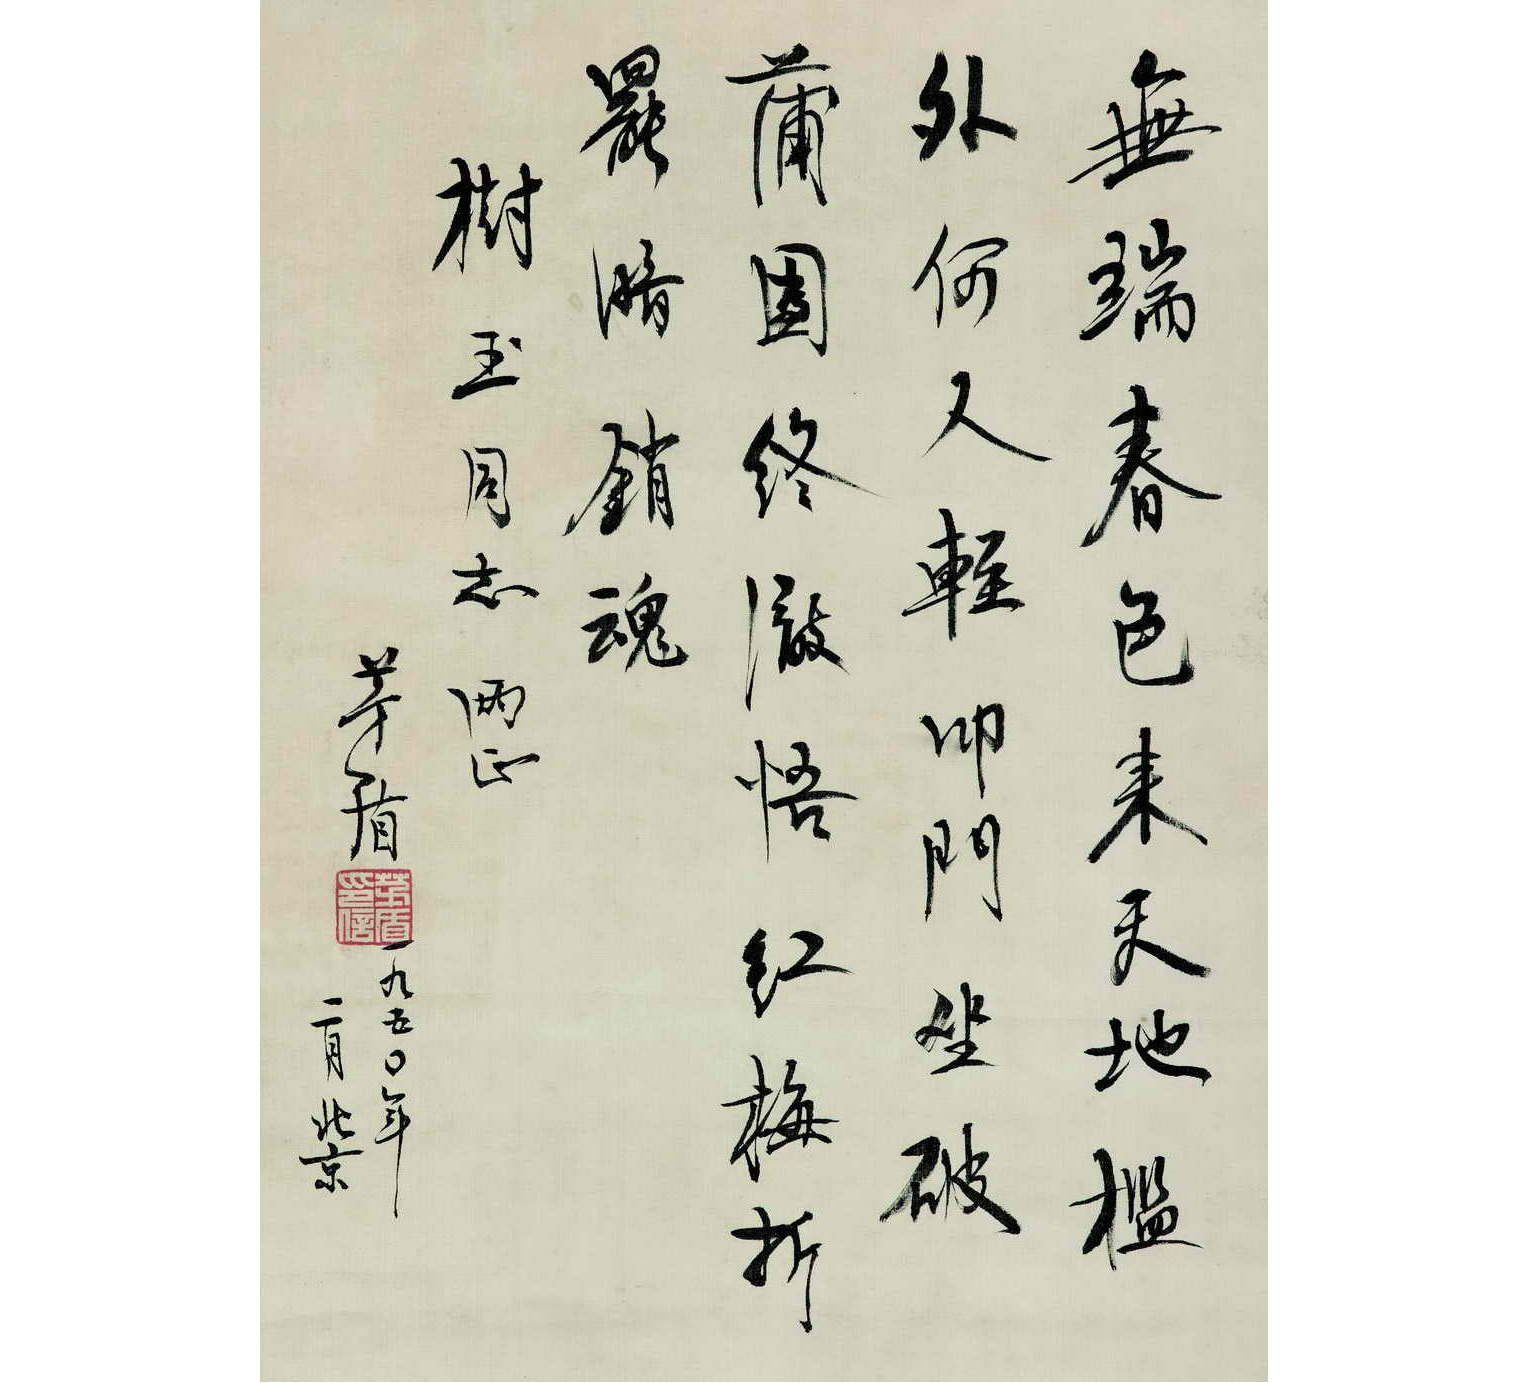 無端春色来天地檻
外何人輕叩門坐破
蒲團終徹悟红梅折
罷暗銷魂
樹玉同志哂正
茅盾
茅盾印信
一九五〇年
二月北京